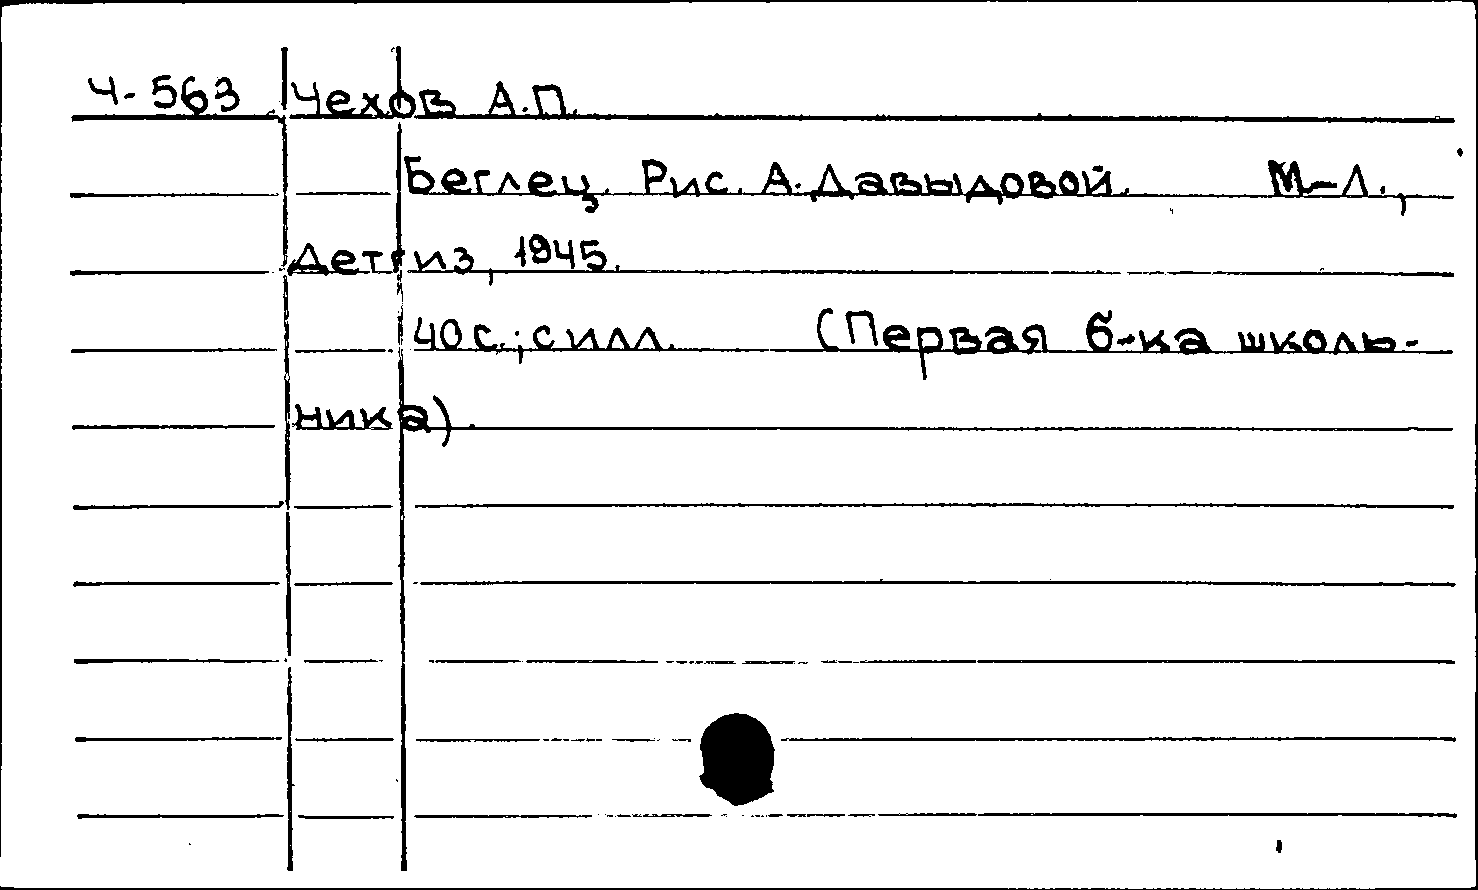 Ч-563 Чехов А.П.
Беглец. Рис. А.Давыдовой. М-Л.,
Детгиз, 1945.
40 с.; с илл. (Первая б-ка школь-
ника).